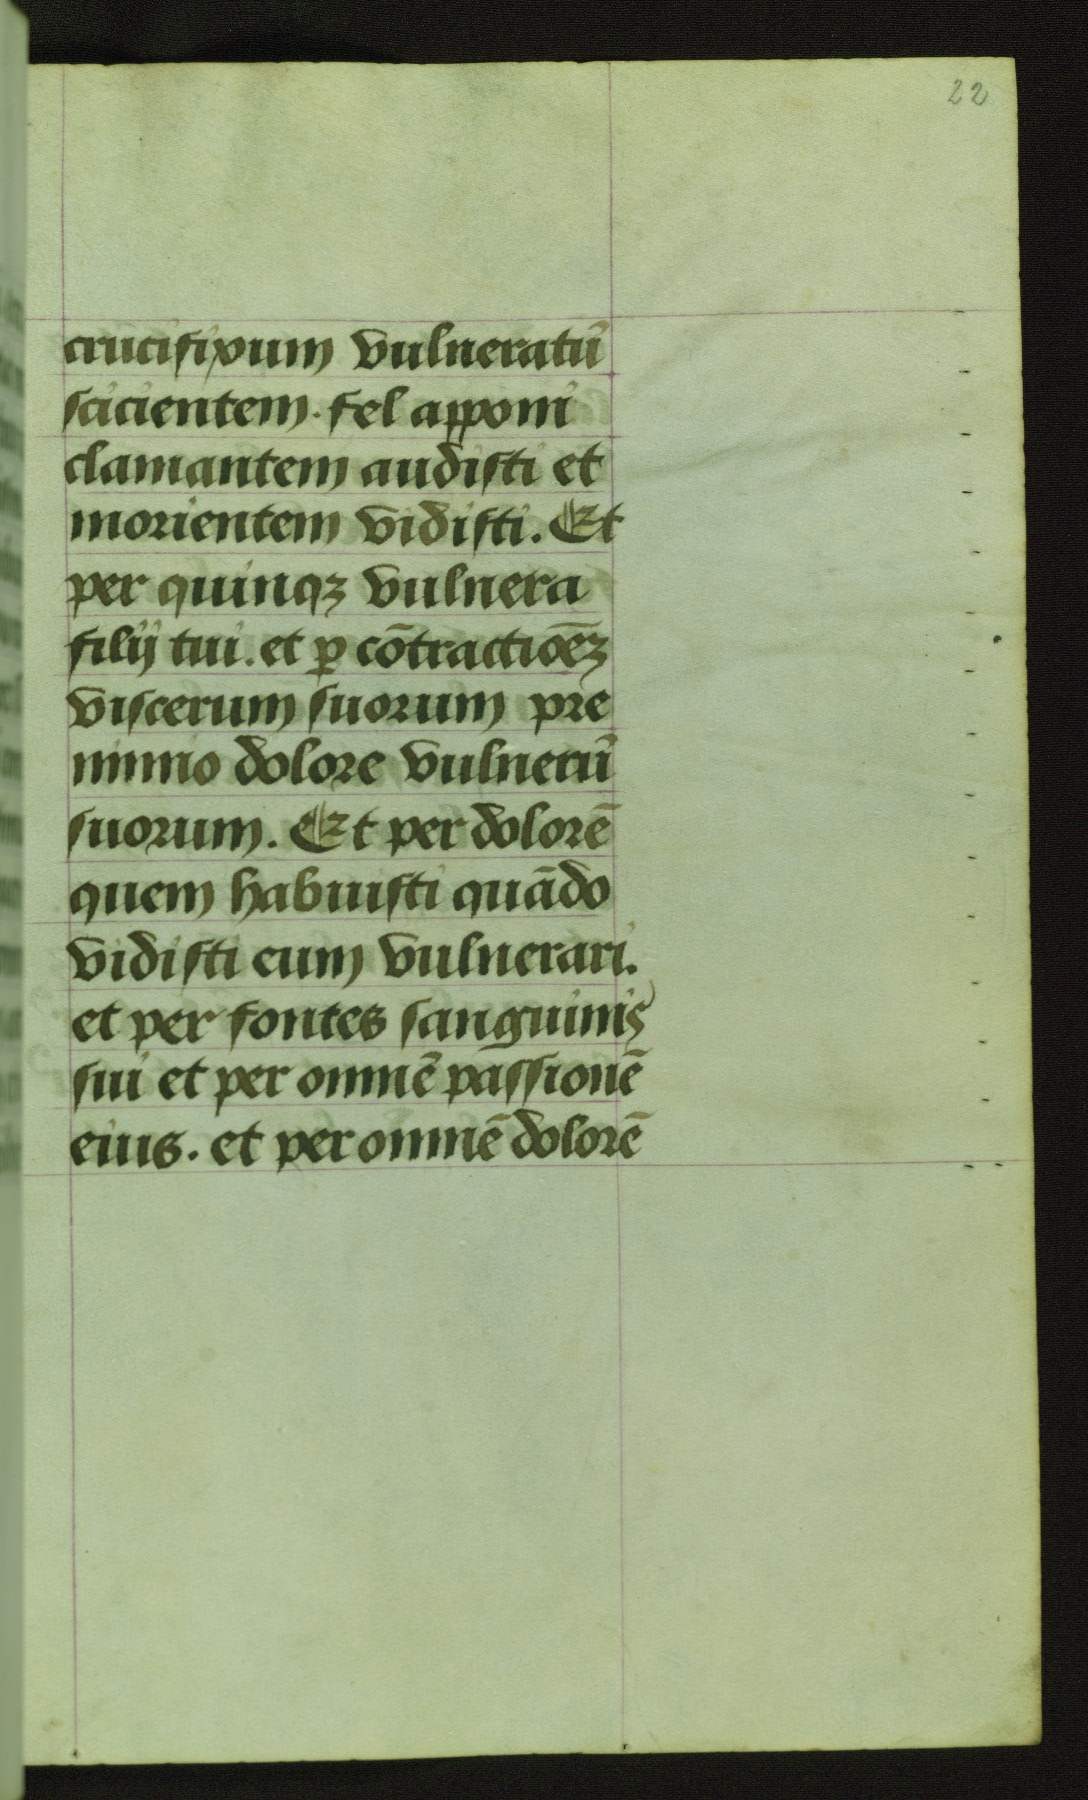 22
crucifixum vulneratū
scicientem. fel apponi
clamantem audisti et
morientem vidisti. Et
per quinqꝫ vulnera
filij tui. et ꝑ cōtractiōeꝫ
viscerum suorum pre
nimio dolore vulnerū
suorum. Et per dolorē
quem habuisti quādo
vidisti eum vulnerari.
et per fontes sanguinis
sui et per omnē passionē
eius. et per omnē dolorē